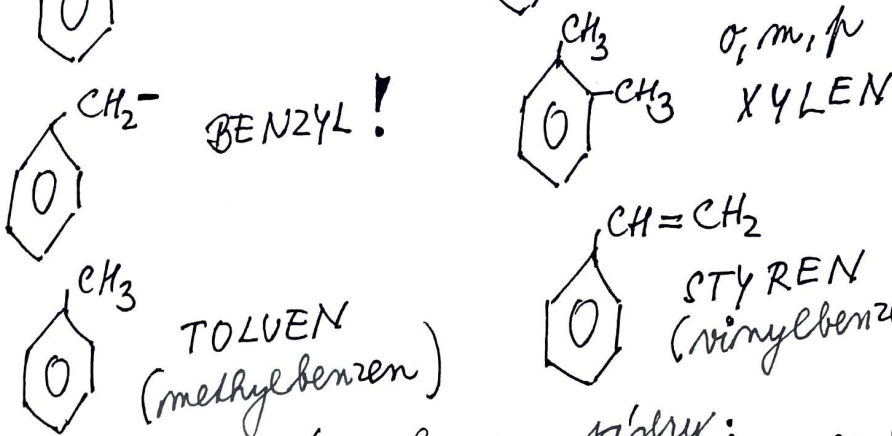 CH2-
BENZYL!
CH3
TOLUEN
(methylbenzen)
CH3
CH3
o, m, p
XYLEN
CH=CH2
STYREN
(vinylbenz